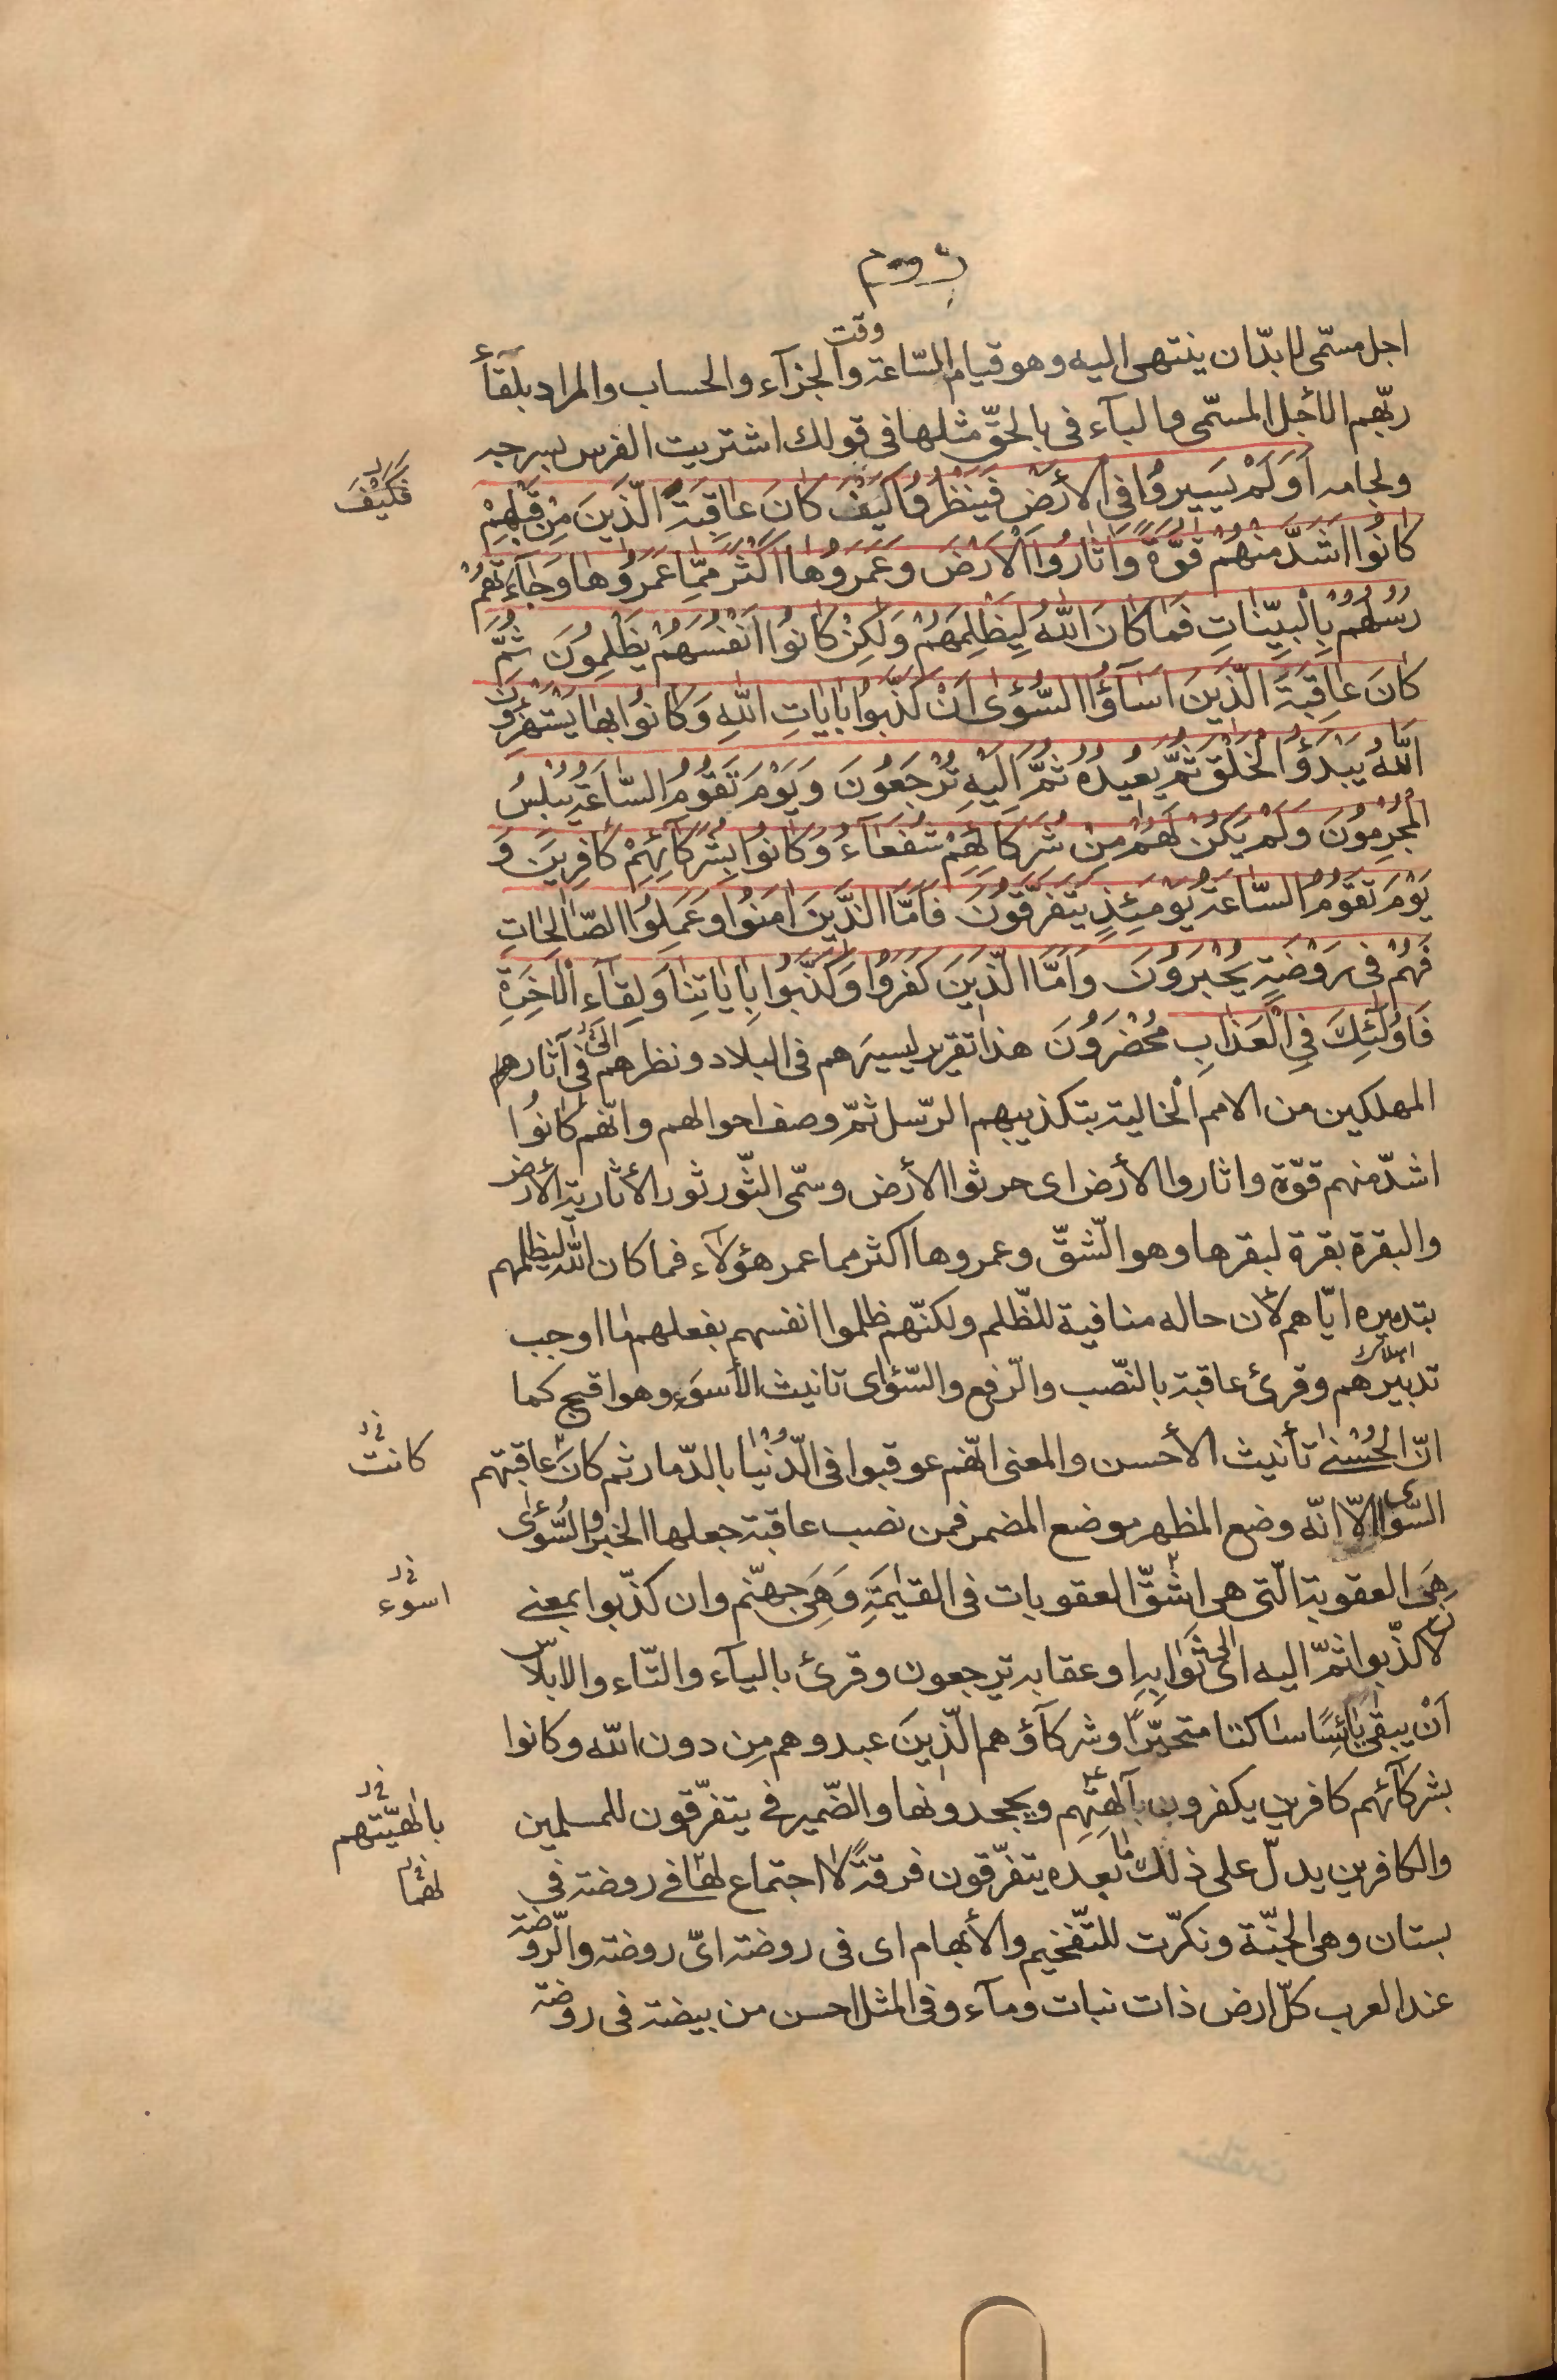 روم
وقت
اجل مسمّى لا بدّ ان ينتهى اليه وهو قيام السّاعة والجزآء والحساب والمراد بلقآء
ربّهم الأجل المسمّى والبآء فى بالحقّ مثلها فى قولك اشتريت الفرس بسرجه
ولجامه اَوَلَمْ يَسيرُوا فِى الْأَرْضِ فَيَنْظُرُوا كَيْفَ كانَ عاقِبَةُ الَّذينَ مِنْ قَبْلِهِمْ
فكَيْفَ
كانُوا اَشَدَّ مِنْهُمْ قُوَّةً وَاَثارُوا الْاَرْضَ وَعَمَرُوها اَكْثَرَ مِمّا عَمَرُوها وَجآءَتْهُمْ
رُسُلُهُمْ بِالْبَيِّناتِ فَما كانَ اللّٰهُ لِيَظْلِمَهُمْ وَلكِنْ كانُوا اَنْفُسَهُمْ يَظْلِمُونَ ثُمَّ
كانَ عاقِبَةَ الَّذينَ اَسآؤُا السُّؤىٰ اَنْ كَذَّبُوا بِاياتِ اللّٰهِ وَكانُوا بِها يَسْتَهْزِؤُنَ
اَللّٰهُ يَبْدَؤُ الْخَلْقَ ثُمَّ يُعيدُهُ ثُمَّ اِلَيْهِ تُرْجَعُونَ وَيَوْمَ تَقُومُ السّاعَةُ يُبْلِسُ
الْمُجْرِمُونَ وَلَمْ يَكُنْ لَهُمْ مِنْ شُرَكائِهِمْ شُفَعآءُ وَكانُوا بِشُرَكآئِهِمْ كافِرينَ وَ
يَوْمَ تَقُومُ السّاعَةُ يَوْمَئِذٍ يَتَفَرَّقُونَ فَاَمَّا الَّذينَ امَنُوا وَعَمِلُوا الصّالِحاتِ
فَهُمْ فى رَوْضَةٍ يُحْبَرُونَ وَاَمَّا الَّذينَ كَفَرُوا وَكَذَّبُوا بِاياتِنا وَلِقآءِ الْاخِرَةِ
فَاُولئِكَ فِى الْعَذابِ مُحْضَرُونَ هذا تقرير لسيرهم فى البلاد ونظرهم الى فى آثارهم
المهلكين من الامم الخالية بتكذيبهم الرّسل ثمّ وصف احوالهم وانّهم كانُوا
اشدّ منهم قوّة واثاروا الأرض اى حرثوا الأرض وسمّى الثّور ثورا لأثاريته الأرض
والبقرة بقرة لبقرها وهو الشّقّ وعمروها اكثر مما عمر هؤلآء فما كان اللّٰه ليظلمهم
بتدميره ايّاهم لأن حاله منافية للظّلم ولكنّهم ظلموا انفسهم بفعلهم ما اوجب
تدبيرهم وقرئ عاقبة بالنّصب والرّفع والسّؤاى تانيث الأسوء وهو اقبح كما
انّ الحُسْنىٰ تأنيث الأحسن والمعنى انّهم عوقبوا فى الدُّنْيا بالدّمار ثم كانَ عاقبتهم
كانت
السّوأى الّا انّه وضع المظهر موضع المضمر فمن نصب عاقبة جعلها الخبر والسُّوأى
هِىَ العقوبة الّتى هى اشقّ العقوبات فى القيٰمَةِ وَهِىَ جهنّم وان كذّبوا بمعنى
اسوء
لأن كذّبوا ثمّ اليه اى الى ثَوابِه او عقابه ترجعون وقرئ باليآء والتّاء والابلاس
اَنْ يبقى يائِسًا ساكتا متحيّرًا وشركآؤهم الّذينَ عبدوهم مِن دون اللّه وكانوا
بشركآئهم كافرين يكفرون بآلهتهم ويجحدونها والضّمير فى يتفرّقون للمسلمين
بالهيّتهم
والكافرين يدلّ على ذلك ما بعده يتفرّقون فرقةً لا اجتماع لها فى روضة فى
لهما
بستان وهى الجنّة ونكّرت للتّفخيم والأبهام اى فى روضة اىّ روضة والرّوضة
عند العرب كلّ ارض ذات نبات ومآء وفى المثل احسن من بيضة فى روضة